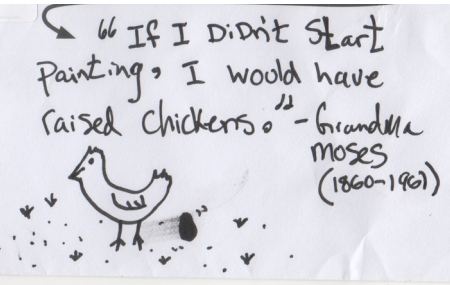 "If I Didn't Start
Painting, I would have
raised Chickens." - Grandma
Moses
(1860-1961)